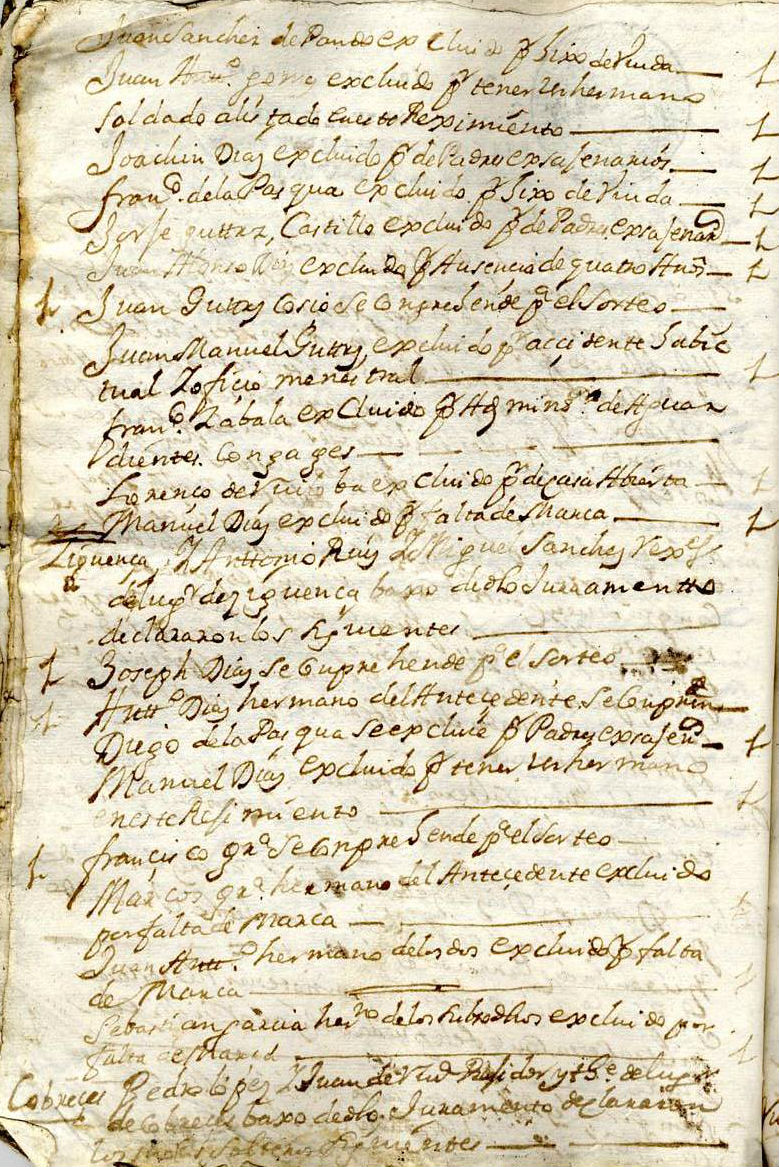 Juan Sanchez de Pando excluido pr hixo de Viuda
Juan excluido pr tener Un hermano
soldado alistado en este Reximiento
Joachin Diaz excluido pr de Padre sexsajenario
franco. de la Pasqua excluido pr hixo de Viuda
Jorje guttrz, Castillo excluido pr de Padre sexsajenaro
Juan Alonso excluido pr Ausencia de quatro
Juan Guttrz Cosio se conprehende pa el Sorteo
Juan Manuel Guttrz, excluido pr accidente habic
tual Y oficio menestral
franco. Zabala excluido pr de Aguar
dientes Con gages
Lorenço de excluido pr de casa Abierta
Manuel Diaz excluido pr falta de Marca
Ziguenca, Y Anttonio Ruiz Y Miguel Sanchez
de lugr de Ziguenca baxo dicho Juramentto
declararon los siguientes
Joseph Diaz se conprehende pa el Sorteo
Antto Diaz hermano del Antecedente, se
Diego de la Pasqua se excluie pr Padre
Manuel Diaz excluido pr tener Un hermano
en este Resimiento
francisco gra se Conprehende pa el Sorteo
Marcos gra hermano del Antecedente excluido
por falta de Marca
Juan Antto. hermano de los dos excluido pr falta
de Marca
Sebastian garcia herno de los subrodhos excluido por
falta de Marca
Cobreces Pedro lopez Y Juan de Rejidor y de lugr
de Cobreces baxo de dho Juramento declararon
los solteros siguientes